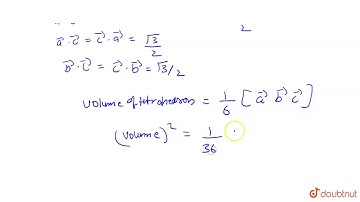 2
a⃗ · c⃗ = c⃗ · a⃗ = √3/2
b⃗ · c⃗ = c⃗ · b⃗ = √3/2
volume of tetrahedron = 1/6 [ a⃗ b⃗ c⃗ ]
(volume)² = 1/36 ·
doubtnut